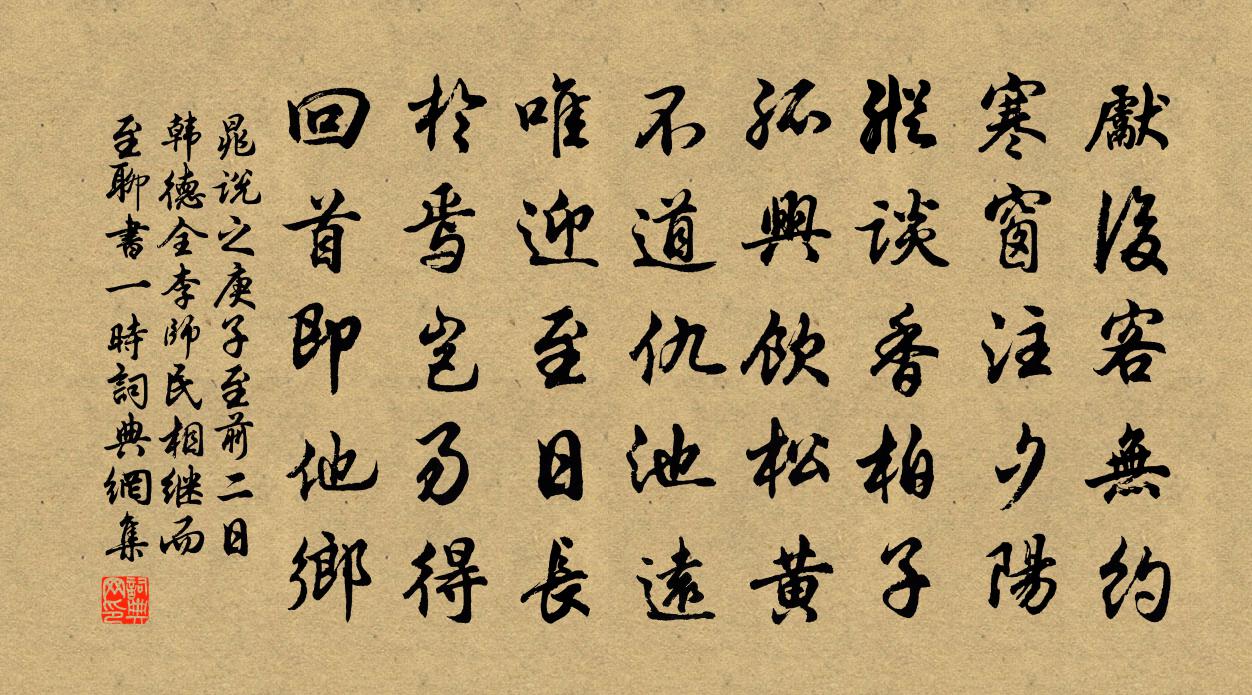 獻後客無約
寒窗注夕陽
縱談香柏子
孤興飲松黃
不道仇池遠
唯迎至日長
於焉岂易得
回首即他鄉
晁说之庚子至前二日
韩德全李師民相继而
至聊書一時詞典網集
詞典网印